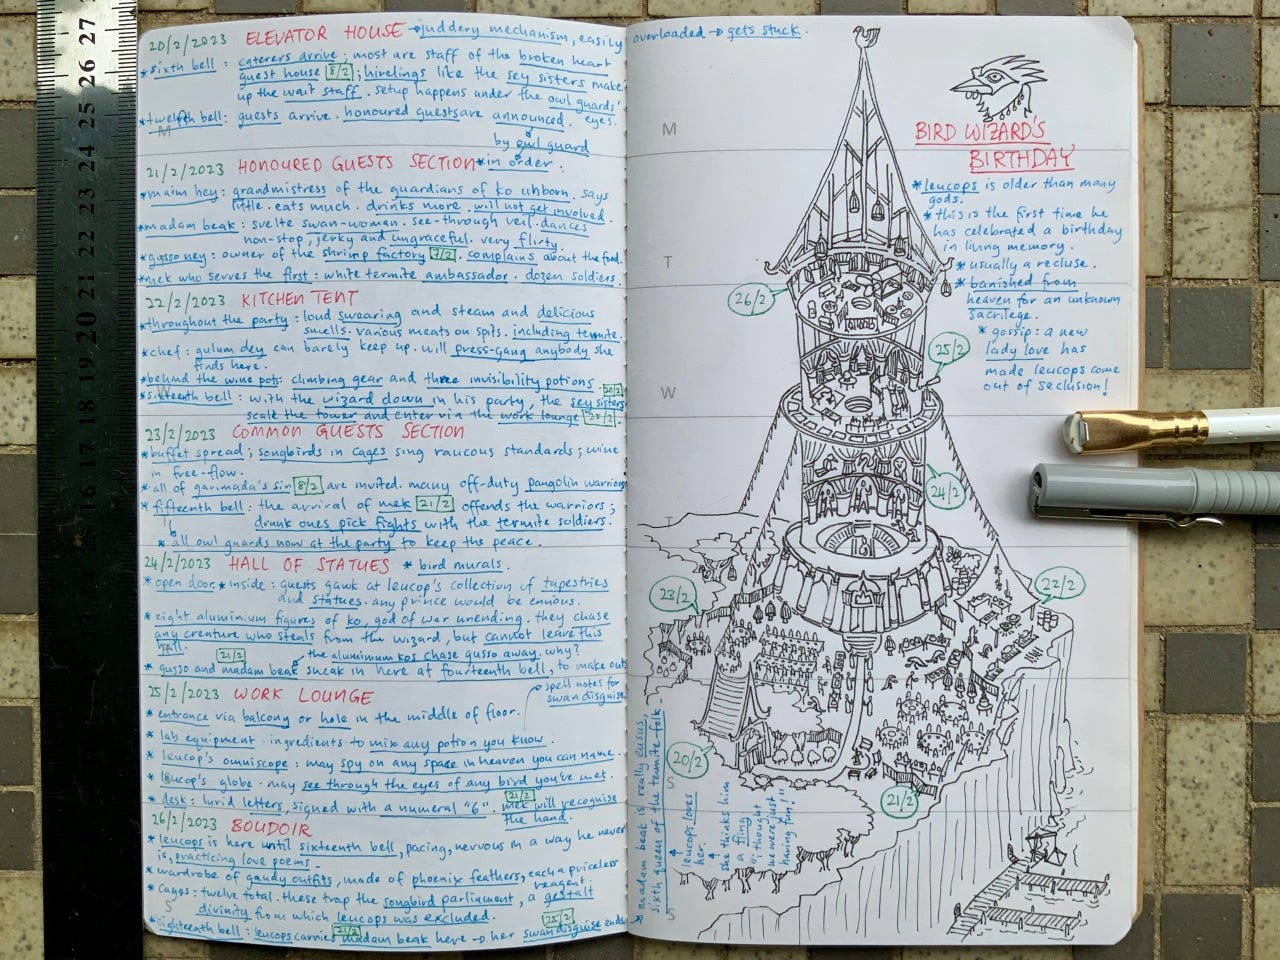 20/2/2023 ELEVATOR HOUSE → juddery mechanism, easily overloaded → gets stuck.
* sixth bell: caterers arrive; most are staff of the broken heart
guest house 8/2; hirelings like the sey sisters make
up the wait staff. setup happens under the owl guards'
eyes.
* twelfth bell: guests arrive. honoured guests are announced.
by owl guard
in order.
21/2/2023 HONOURED GUESTS SECTION
* maim hey: grandmistress of the guardians of ko unborn. says
little. eats much. drinks more. will not get involved.
* madam beak: svelte swan-woman. see-through veil. dances
non-stop, jerky and ungraceful. very flirty.
* gusso ney: owner of the shrimp factory 7/2. complains about the food.
* mek who serves the first: white termite ambassador. dozen soldiers.
22/2/2023 KITCHEN TENT
* throughout the party: loud swearing and steam and delicious
smells. various meats on spits. including termite.
* chef: gulum dey can barely keep up. will press-gang anybody she
finds here.
* behind the wine pots: climbing gear and three invisibility potions. 20/2
* sixteenth bell: with the wizard down in his party, the sey sisters
scale the tower and enter via the work lounge 25/2.
23/2/2023 COMMON GUESTS SECTION
* buffet spread; songbirds in cages sing raucous standards; wine
in free-flow.
* all of garimada's sin 8/2 are invited. many off-duty pangolin warriors
* fifteenth bell: the arrival of mek 21/2 offends the warriors;
drunk ones pick fights with the termite soldiers.
* all owl guards now at the party to keep the peace.
24/2/2023 HALL OF STATUES * bird murals.
* open door. * inside: guests gawk at leucop's collection of tapestries
and statues. any prince would be envious.
* eight aluminium figures of ko, god of war unending. they chase
any creature who steals from the wizard, but cannot leave this
hall.
21/2 the aluminium kos chase gusso away. why?
* gusso and madam beak sneak in here at fourteenth bell, to make out
25/2/2023 WORK LOUNGE
spell notes for
swan disguise
* entrance via balcony or hole in the middle of floor.
* lab equipment: ingredients to mix any potion you know.
* leucop's omniscope: may spy on any space in heaven you can name.
* leucop's globe: may see through the eyes of any bird you've met.
21/2
* desk: lurid letters, signed with a numeral "6". mek will recognise
the hand.
26/2/2023 BOUDOIR
* leucops is here until sixteenth bell, pacing, nervous in a way he never
is, practicing love poems.
* wardrobe of gaudy outfits, made of phoenix feathers, each a priceless
reagent
* cages: twelve total. these trap the songbird parliament, a gestalt
divinity from which leucops was excluded.
21/2 25/2
* eighteenth bell: leucops carries madam beak here → her swan disguise ends
BIRD WIZARD'S
BIRTHDAY
* leucops is older than many
gods.
* this is the first time he
has celebrated a birthday
in living memory.
* usually a recluse.
* banished from
heaven for an unknown
sacrilege.
* gossip: a new
lady love has
made leucops come
out of seclusion!
26/2
25/2
24/2
23/2
22/2
20/2
21/2
→ madam beak is really eusus,
sixth queen of the termite-folk.
leucops loves
her.
she thinks him
a fling
"i thought
we were just
having fun!"
M
T
W
T
S
S
M
W
S
27
26
25
24
23
22
21
20
19
18
17
16
15
14
13